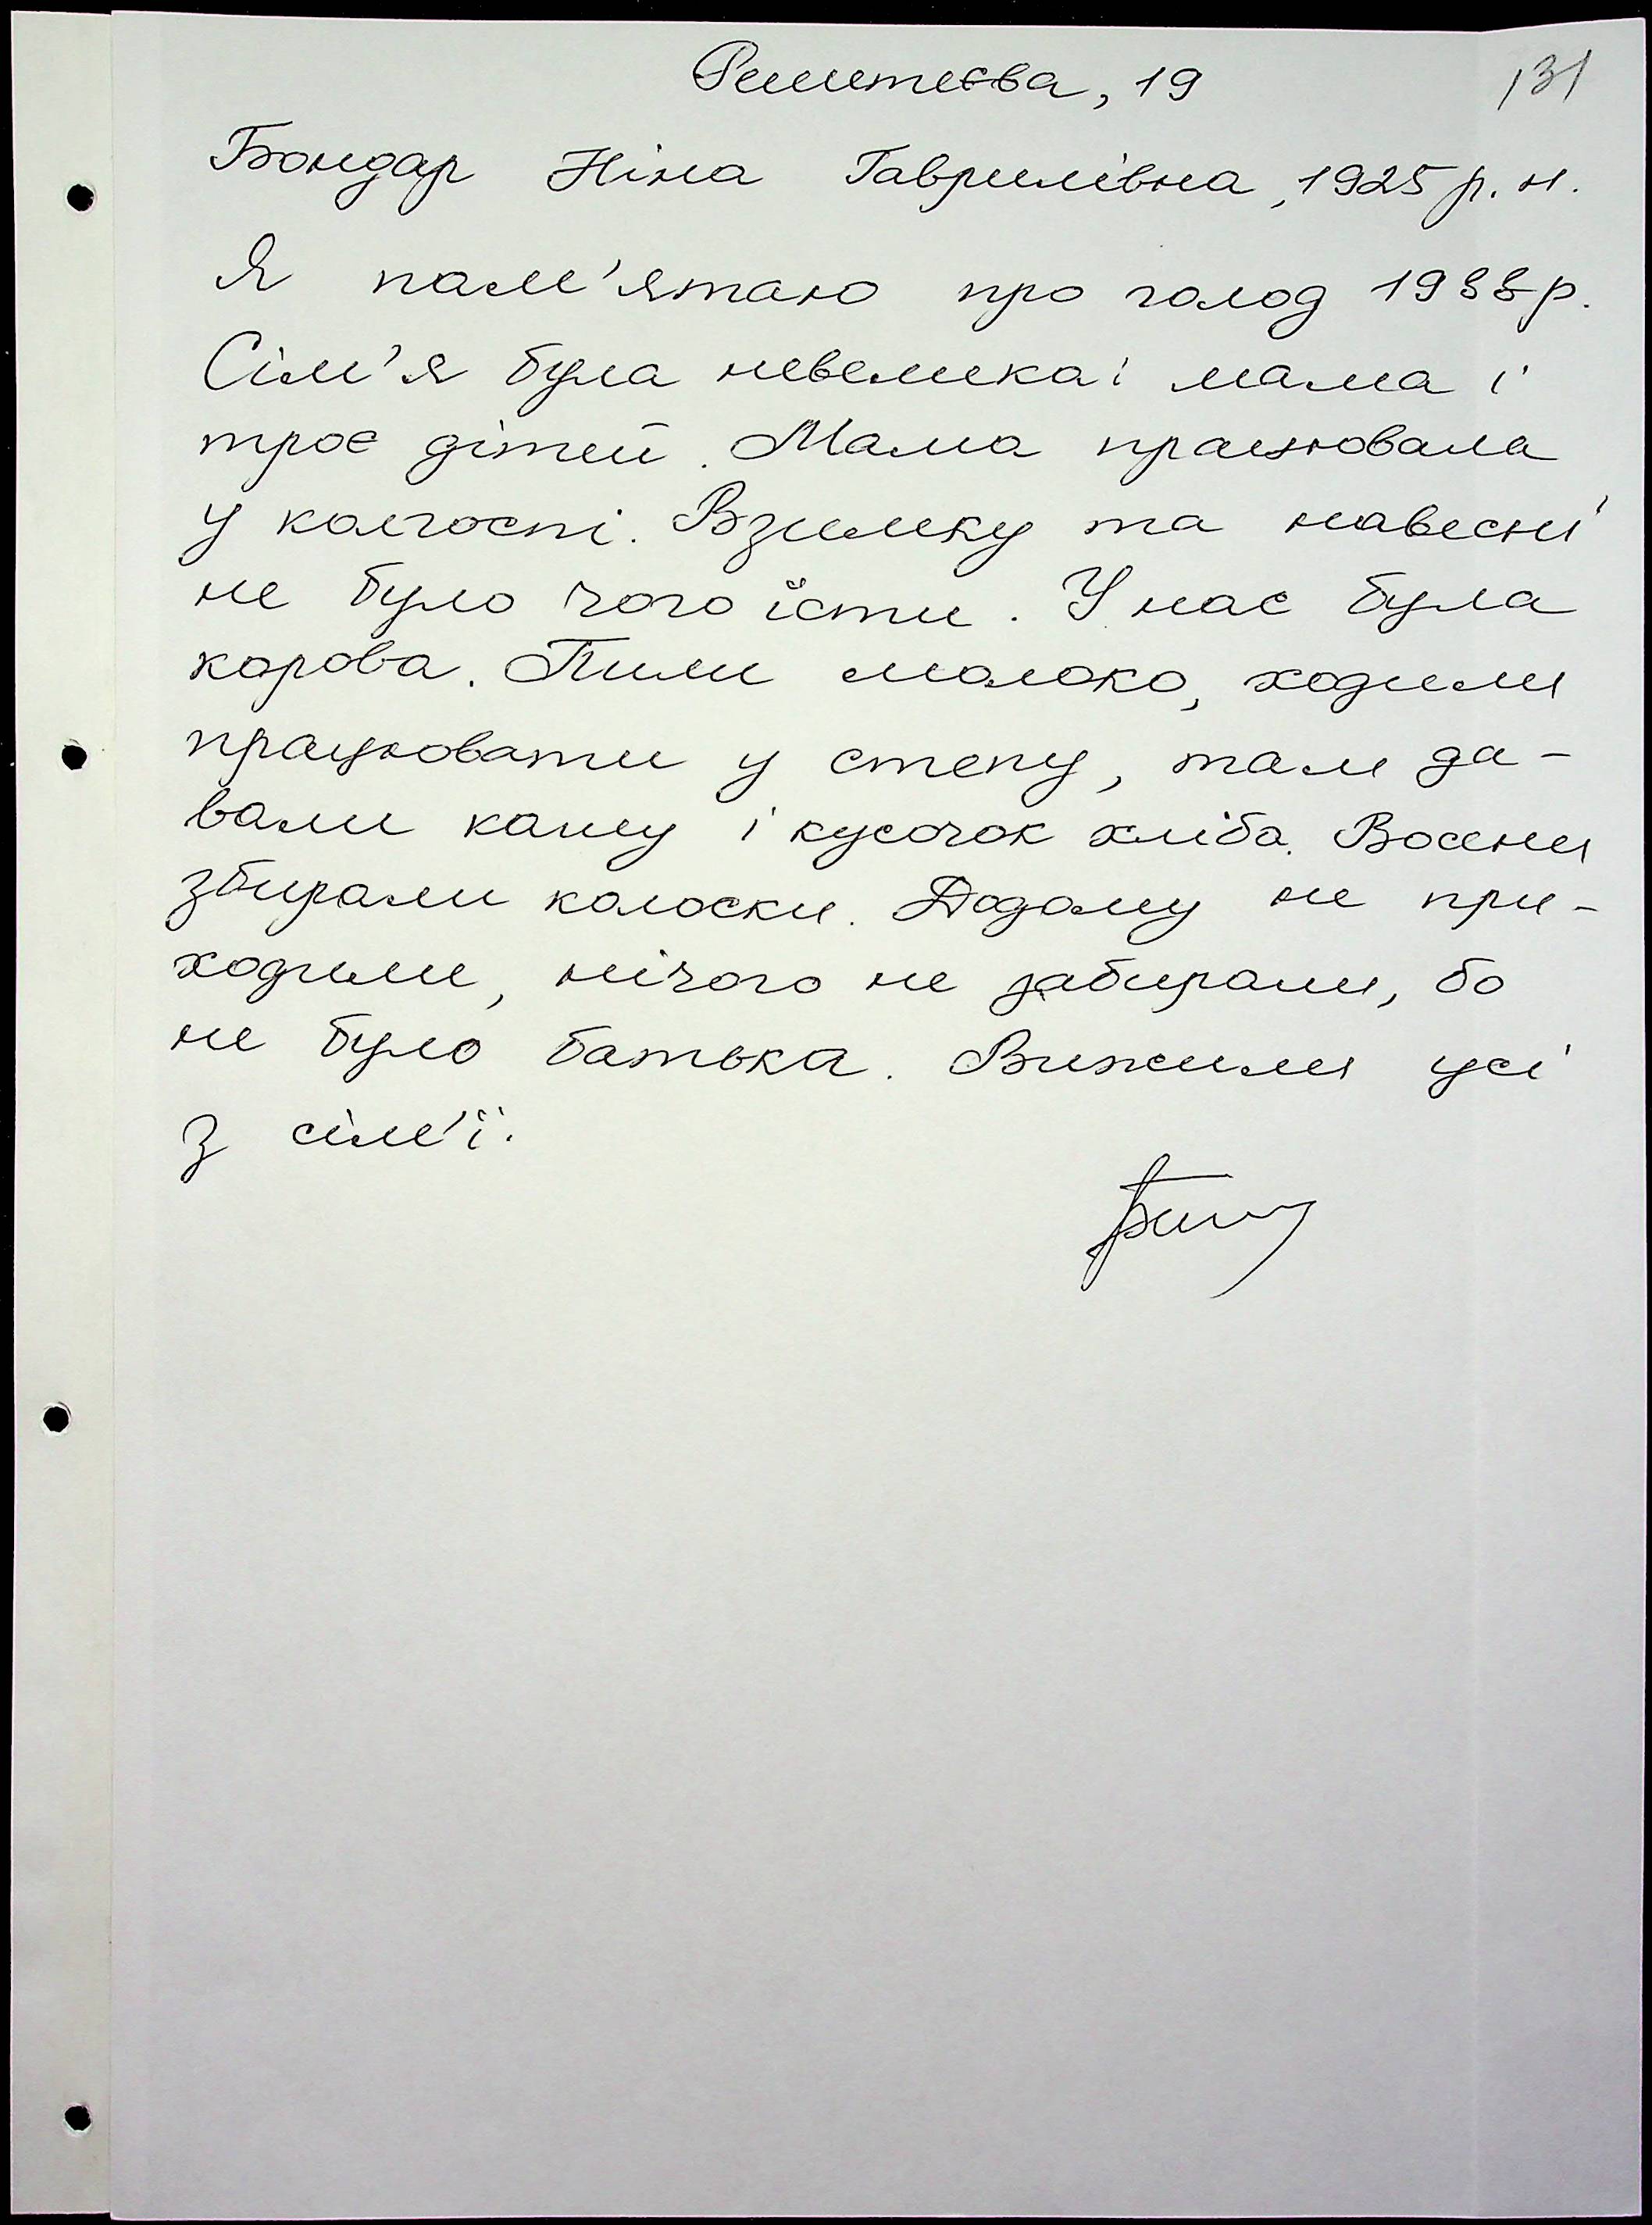 131
Решетєва, 19
Бондар Ніна Гаврилівна, 1925 р. н.
Я пам'ятаю про голод 1933 р.
Сім'я була невелика: мама і
троє дітей. Мама працювала
у колгоспі. Взимку та навесні
не було чого їсти. У нас була
корова. Пили молоко, ходили
працювати у степу, там да-
вали кашу і кусочок хліба. Восени
збирали колоски. Додому не при-
ходили, нічого не забирали, бо
не було батька. Вижили усі
з сім'ї.